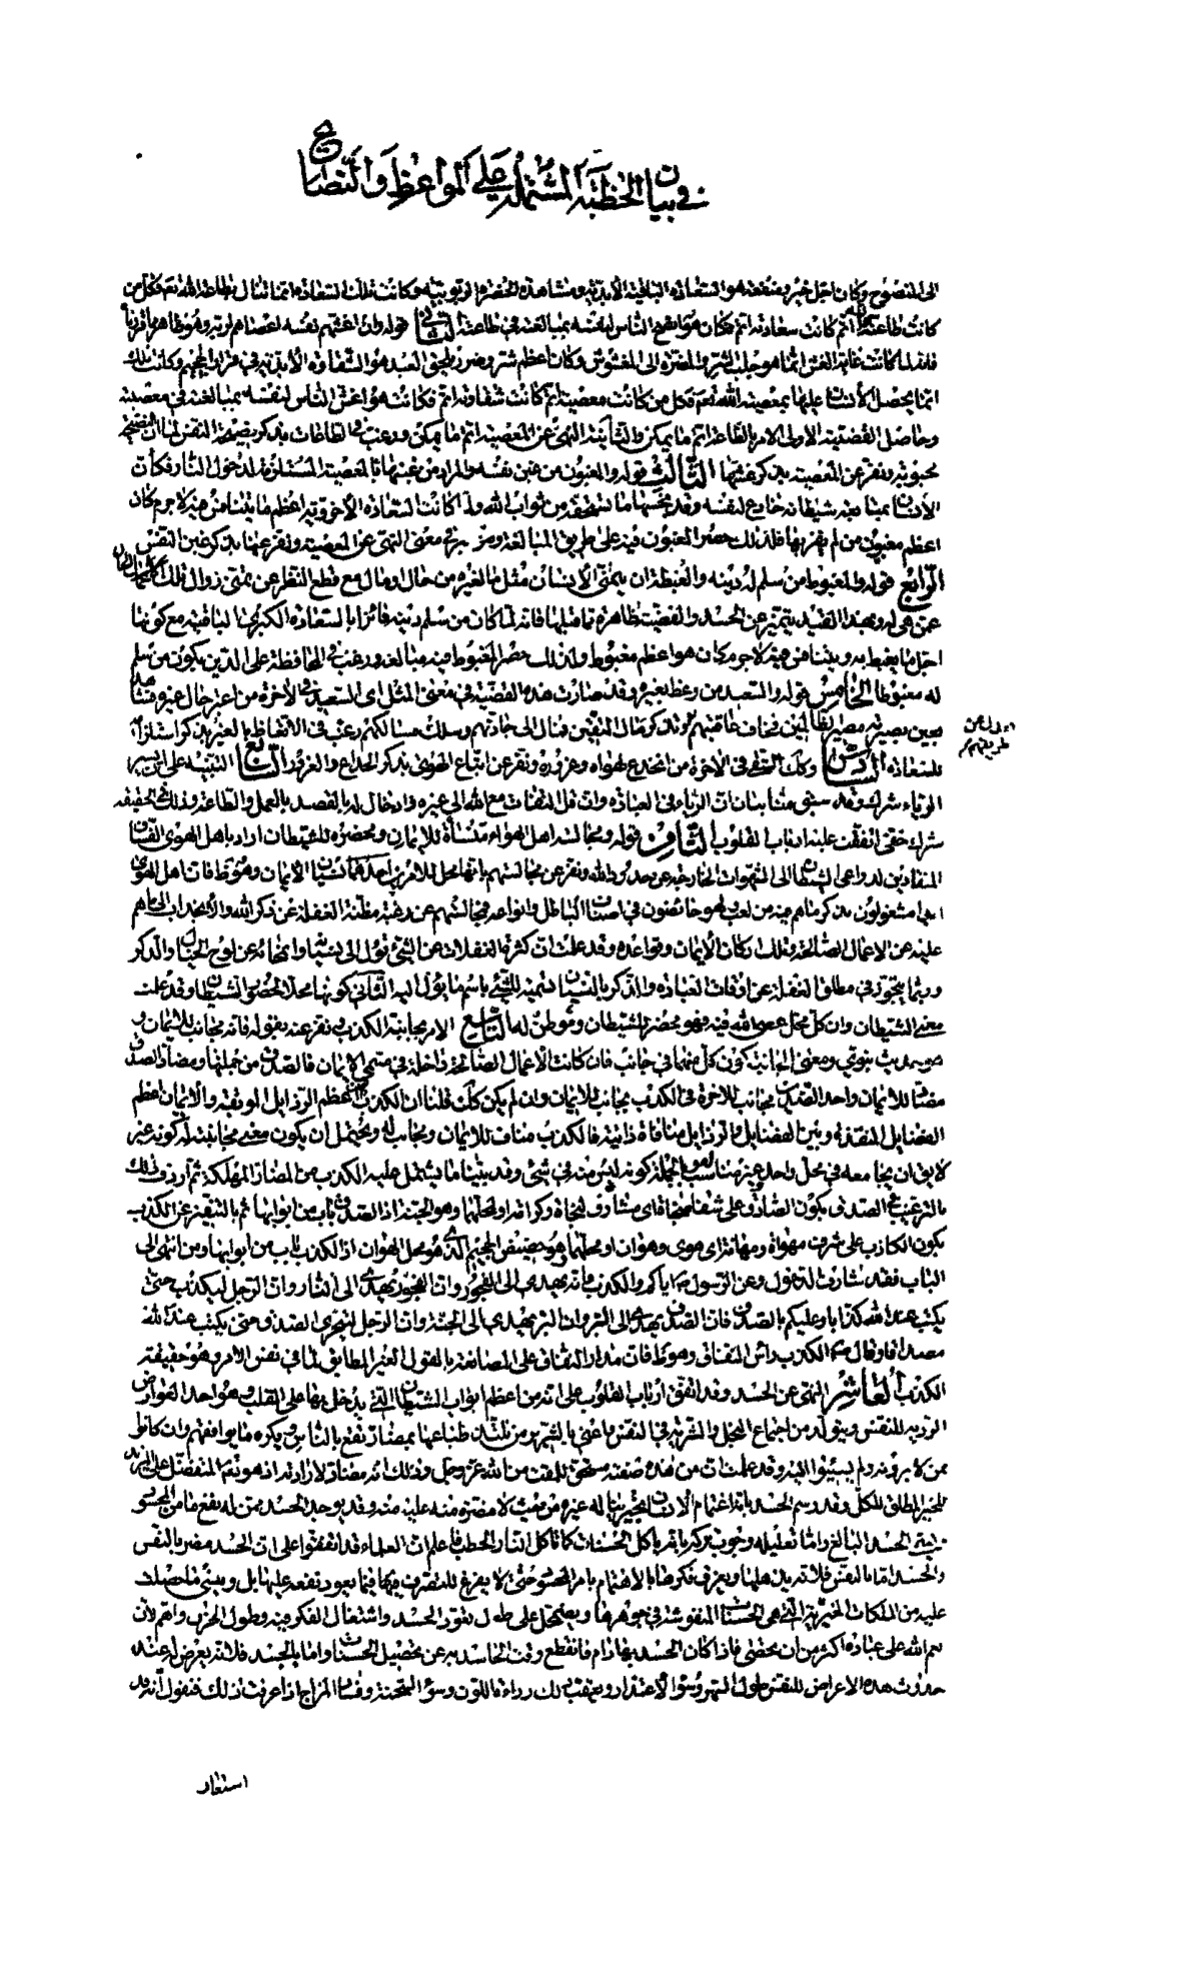 في بيان الخطبة المشتملة على المواعظ والنصايح
الى المنصوح وكان اجل خير ومنفعة هو السعادة الباقية الأبدية ومشاهدة الحضرة الربوبية وكانت تلك السعادة انما تنال بطاعة الله تعالى فكل من
كانت طاعته لله اتم كانت سعادته اتم فكان هو انصح الناس لنفسه بمبالغته في طاعته الثاني قوله وان اغشهم لنفسه اعصاهم لربه وهو ظاهر مما قررناه
فانه لما كانت غاية الغش انما هو جلب الشر والمضرة الى المغشوش وكان اعظم شر وضرر يلحق العبد هو الشقاوة الأبدية في قرار الجحيم وكانت تلك
انما يحصل الأنسان عليها بمعصية الله تعالى فكل من كانت معصيته اتم كانت شقاوته اتم فكانت هو اغش الناس لنفسه بمبالغته في معصيته
وحاصل القضيتة الاولى الامر بالطاعة اتم ما يمكن والثانية النهى عن المعصية اتم ما يمكن ورغب في الطاعات بذكر نصيحة النفس لما ان النصيحة
محبوبة ونفر عن المعصية بذكر غشها الثالث قوله والمغبون من غبن نفسه والمراد من غبنها بالمعصية المستلزمة لدخول النار فكأن
الأنسان بمتابعة شيطانه خادع لنفسه وقد بخسها ما تستحقه من ثواب الله ولما كانت السعادة الأخروية اعظم ما يتنافس فيه لا جرم كان
اعظم مغبون من لم يفز بها فلذلك حصر المغبون فيه على طريق المبالغة ورمز به في معنى النهى عن المعصية ونفر عنها بذكر غبن النفس
الرابع قوله والمغبوط من سلم له دينه والغبطة ان يتمنى الأنسان مثل ما لغيره من حال او مال مع قطع النظر عن تمنى زوال تلك الحال
عمن هى له وبهذا القيد يتميز عن الحسد والقضية ظاهرة مما قبلها فانه لما كان من سلم دينه فائزا بالسعادة الكبرى الباقية مع كونها
اجل ما يغبط به ويتنافس فيه لا جرم كان هو اعظم مغبوط ولذلك حصر المغبوط فيه مبالغة ورغب في المحافظة على الدين بكون من سلم
له مغبوطا الخامس قوله والسعيد من وعظ بغيره وقد صارت هذه القضية في معنى المثل اى السعيد في الأخرة من اعتبر حال غيره فشاهد
بعين بصيرته مصير الظالمين فخاف عاقبتهم وتذكر مآل المتقين فمال الى جادتهم وسلك مسالكهم ورغب في الاتعاظ بالغير بذكر استلزامه
للسعادة السادس وكذلك الشقى في الاخرة من انخدع لهواه وغروره ونفر عن اتباع الهوى بذكر الخداع والغرور السابع التنبيه على ان يسير
الرياء شرك وقد سبق منا بيان ان الرياء في العبادة وان قل التفات مع الله الى غيره وادخال له بالقصد بالعمل والطاعة وذلك في الحقيقة
شرك خفى اتفقت عليه ارباب القلوب الثامن قوله ومجالسة اهل الهواء منساة للايمان ومحضرة للشيطان اراد باهل الهوى الفساق
المنقادين لدواعى الشيطان الى الشهوات الخارجة عن حدود الله ونفر عن مجالستهم بانها محل للامرين احدهما نسيان الأيمان وهو ظ فان اهل الهوى
ابدا مشغولون بذكر ما هم فيه من لعب ولهو خائضون في اصناف الباطل وانواعه فمجالستهم عن رغبة مظنة الغفلة عن ذكر الله والأنجذاب الى ما هم
عليه عن الاعمال الصالحة وتلك اركان الأيمان وقواعده وقد علمت ان كثرة الغفلات عن الشئ تؤل الى نسيانه وانمحائه عن لوح الخيال والذكر
وربما يتجوز في مطلق الغفلة عن اوقات العبادة والذكر بالنسيان تسمية للشئ باسم ما يؤل اليه الثانى كونها محلا لحضور الشيطان وقد علمت
معنى الشيطان وان كل محل عصى الله فيه فهو محضر للشيطان وموطن له التاسع الامر بمجانبة الكذب ونفر عنه بقوله فانه مجانب للايمان و
هو حديث نبوى ومعنى المجانبة كون كل منهما في جانب فان كانت الأعمال الصالحة داخلة في مسمى الأيمان فالصدق من جملتها ومضاد الصدق
مضاد للايمان واحد الضدين مجانب للاخر فالكذب مجانب للايمان وان لم يكن كك قلنا ان الكذب اعظم الرذايل الموبقة والأيمان اعظم
الفضايل المنقذة وبين الفضايل والرذايل منافاة ذاتية فالكذب مناف للايمان ومجانب له ويحتمل ان يكون معنى مجانبته له كونه غير
لايق ان يجامعه في محل واحد وغير مناسب له وبالجملة كونه ليس منه في شئ وقد بينا ما يشتمل عليه الكذب من المضار المهلكة ثم اردف ذلك
بالترغيب في الصدق بكون الصادق على شفا منجاة اى مشارف لنجاة وكرامة او لمحلهما وهو الجنة اذ الصدق باب من ابوابها ثم بالتنفير عن الكذب
بكون الكاذب على شرف مهواة ومهانة اى هوى وهوان او محلهما وهو حضيض الجحيم الذى هو محل الهوان اذ الكذب باب من ابوابها ومن انتهى الى
الباب فقد شارف الدخول وعن الرسول ص اياكم والكذب فانه يهدى الى الفجور وان الفجور يهدى الى النار وان الرجل ليكذب حتى
يكتب عند الله كذابا وعليكم بالصدق فان الصدق يهدى الى البر وان البر يهدى الى الجنة وان الرجل ليتحرى الصدق حتى يكتب عند الله
صديقا وقال ص الكذب راس النفاق وهو ظ فان مدار النفاق على المصانعة بالقول الغير المطابق لما في نفس الامر وهو حقيقة
الكذب العاشر النهى عن الحسد وقد اتفق ارباب القلوب على انه من اعظم ابواب الشيطان التى يدخل بها على القلب وهو احد العوارض
الردية للنفس ويتولد من اجتماع البخل والشرية في النفس واعنى بالشرير من تلتذ طباعها بمضار تقع بالناس ويكره ما يوافقهم وان كانوا
ممن لا يرده ولم يسيئوا اليه وقد علمت ان من هذه صفته مستحق للمقت من الله عز وجل وذلك انه مضاد لارادته اذ هو تعالى المتفضل على الخلق
للخير المطلق للكل وقد رسم الحسد بانه اغتمام الأنسان بخير يناله غيره من حيث لا مضرة منه عليه منه وقد يوجد الحسد ممن له نفع ما من المحسود
ويسمى الحسد البالغ واما تعليله وجوب تركه بانه ياكل الحسنات كما تاكل النار الحطب فاعلم ان العلماء قد اتفقوا على ان الحسد مضر بالنفس
والجسد اما بالنفس فلانه يذهلها ويعزف فكرها بالاهتمام بامر المحسود حتى لا يفرغ للتصرف فيما يعود نفعه عليها بل وينسى ما حصلت
عليه من الملكات الخيرية التى هى الحسنات المنقوشة في جوهرها ويضمحل على طول تعود الحسد واشتغال الفكر فيه وطول الحزن والهم لأن
نعم الله على عباده اكثر من ان يحصى فاذا كان الحسد بها دام فانقطع وقت الحاسد به عن تحصيل الحسنات واما بالجسد فلانه يعرض له عند
حدوث هذه الاعراض للنفس طول السهر وسوء الاغتذاء ويعقب ذلك رداءة اللون وسوء السحنة وفساد المزاج اذا عرفت ذلك فنقول انه قد
استعار